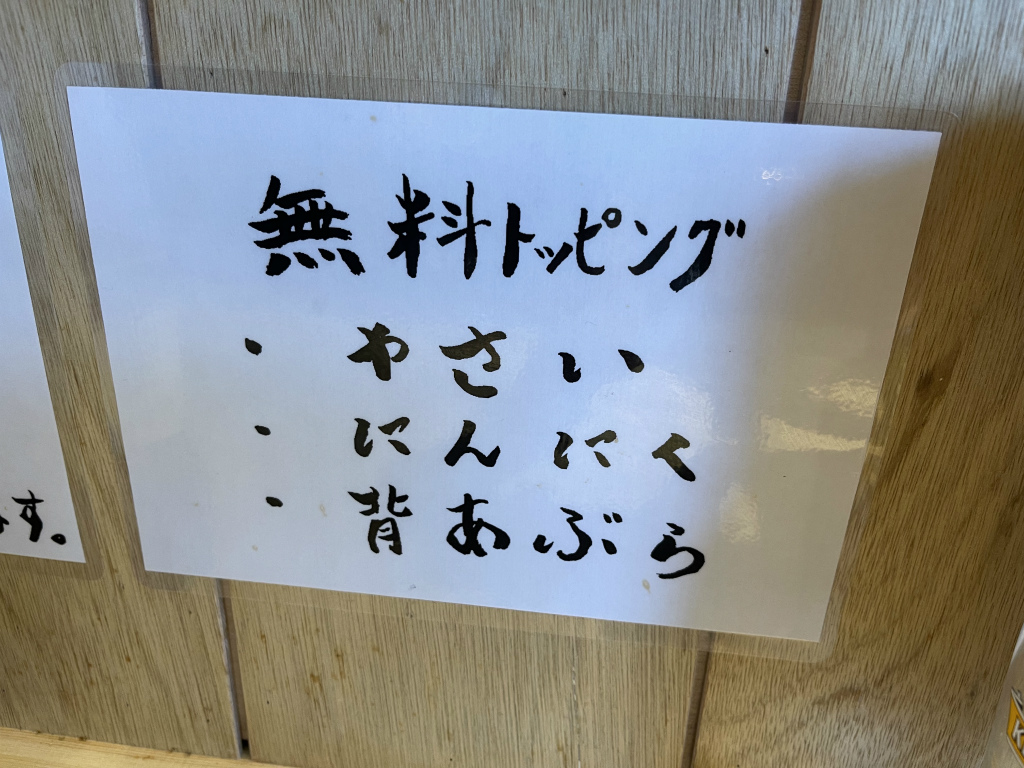 無料トッピング
・ やさい
・ にんにく
・ 背あぶら
す。